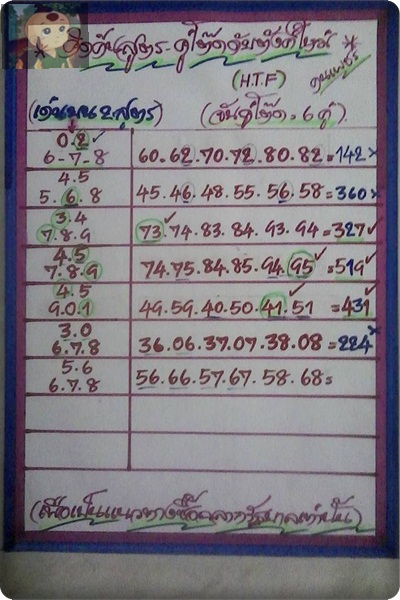 * คิดค้นสูตร-คู่โต๊ดจับยังคู่ใหม่ *
(H.T.F)
(เด่นบน 2 สูตร) (จับคู่โต๊ด = 6 คู่)
0.2✓
6-7-8 60.62.70.72.80.82=142×
4.5
5.6.8 45.46.48.55.56.58=360×
3.4
7.8.9 73✓74.83.84.93.94=327✓
4.5
7.8.9 74.75.84.85.94.95✓=519✓
4.5
9.0.1 49.59.40.50.41✓.51=431✓
3.0
6.7.8 36.06.37.07.38.08=224×
5.6
6.7.8 56.66.57.67.58.68=
(เพื่อเป็นแนวทางซื้อฉลากรัฐบาลเท่านั้น)